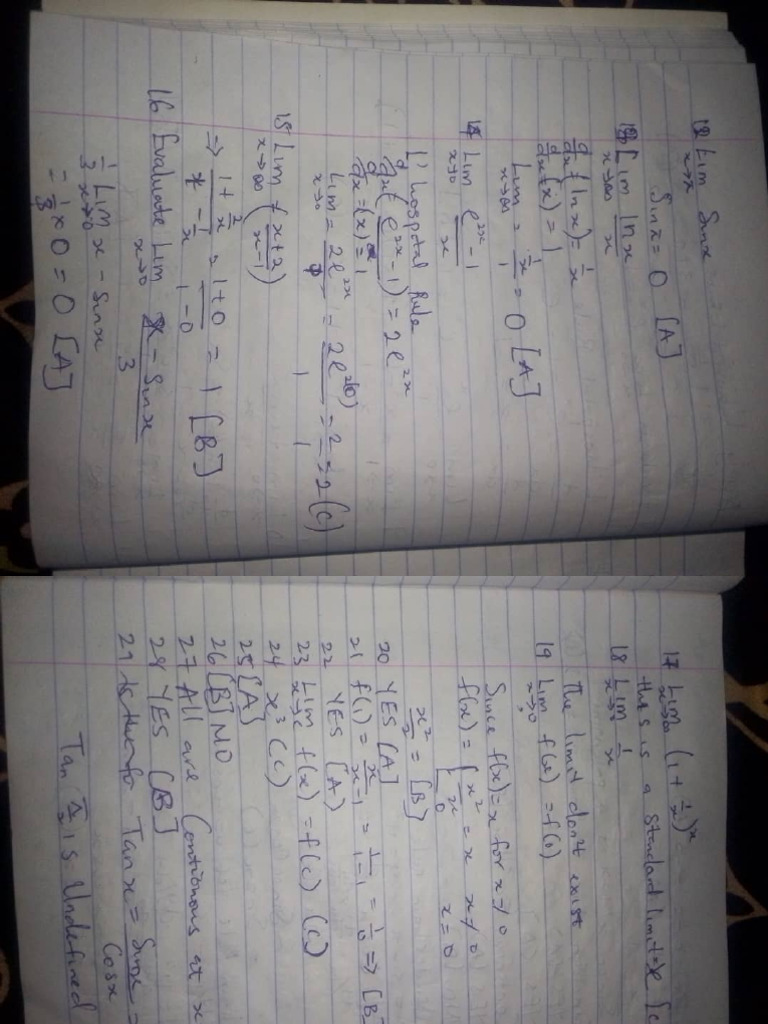 12 Lim Sinx
x→x
Sinx = 0 [A]
13 Lim ln x
x→∞ x
d/dx (ln x) = 1/x
d/dx (x) = 1
Lim = 1/x = 0 [A]
x→∞
14 Lim e^2x - 1
x→0 x
L'hospital Rule
d/dx (e^2x - 1) = 2e^2x
d/dx = (x) = 1
Lim = 2e^2x = 2e^2(0) = 2 = 2 (C)
x→0 1 1 1
15 Lim (x+2 / x-1)
x→∞
⇒ 1 + 2/x = 1+0 = 1 [B]
- 1/x 1 - 0
16 Evaluate Lim x - Sin x
x→0 3
1/3 Lim x - Sinx
x→0
= 1/3 x 0 = 0 [A]
17 Lim (1 + 1/x)^x
x→∞
this is a Standard limit =
18 Lim 1/x
The limit don't exist
19 Lim f(x) = f(0)
x→0
Since f(x) = x for x ≠ 0
f(x) = { x^2/x = x x ≠ 0
0 x = 0
20 YES [A]
x^2 = [B]
21 f(1) = x/x-1 = 1/1-1 = 1/0 ⇒ [B]
22 YES [A]
23 Lim f(x) = f(c) (C)
x→c
24 x^3 (C)
25 [A]
26 [B] NO
27 All are Continous at x
28 YES [B]
29 Tan x = Sinx =
Cosx
Tan π/2 is Undefined